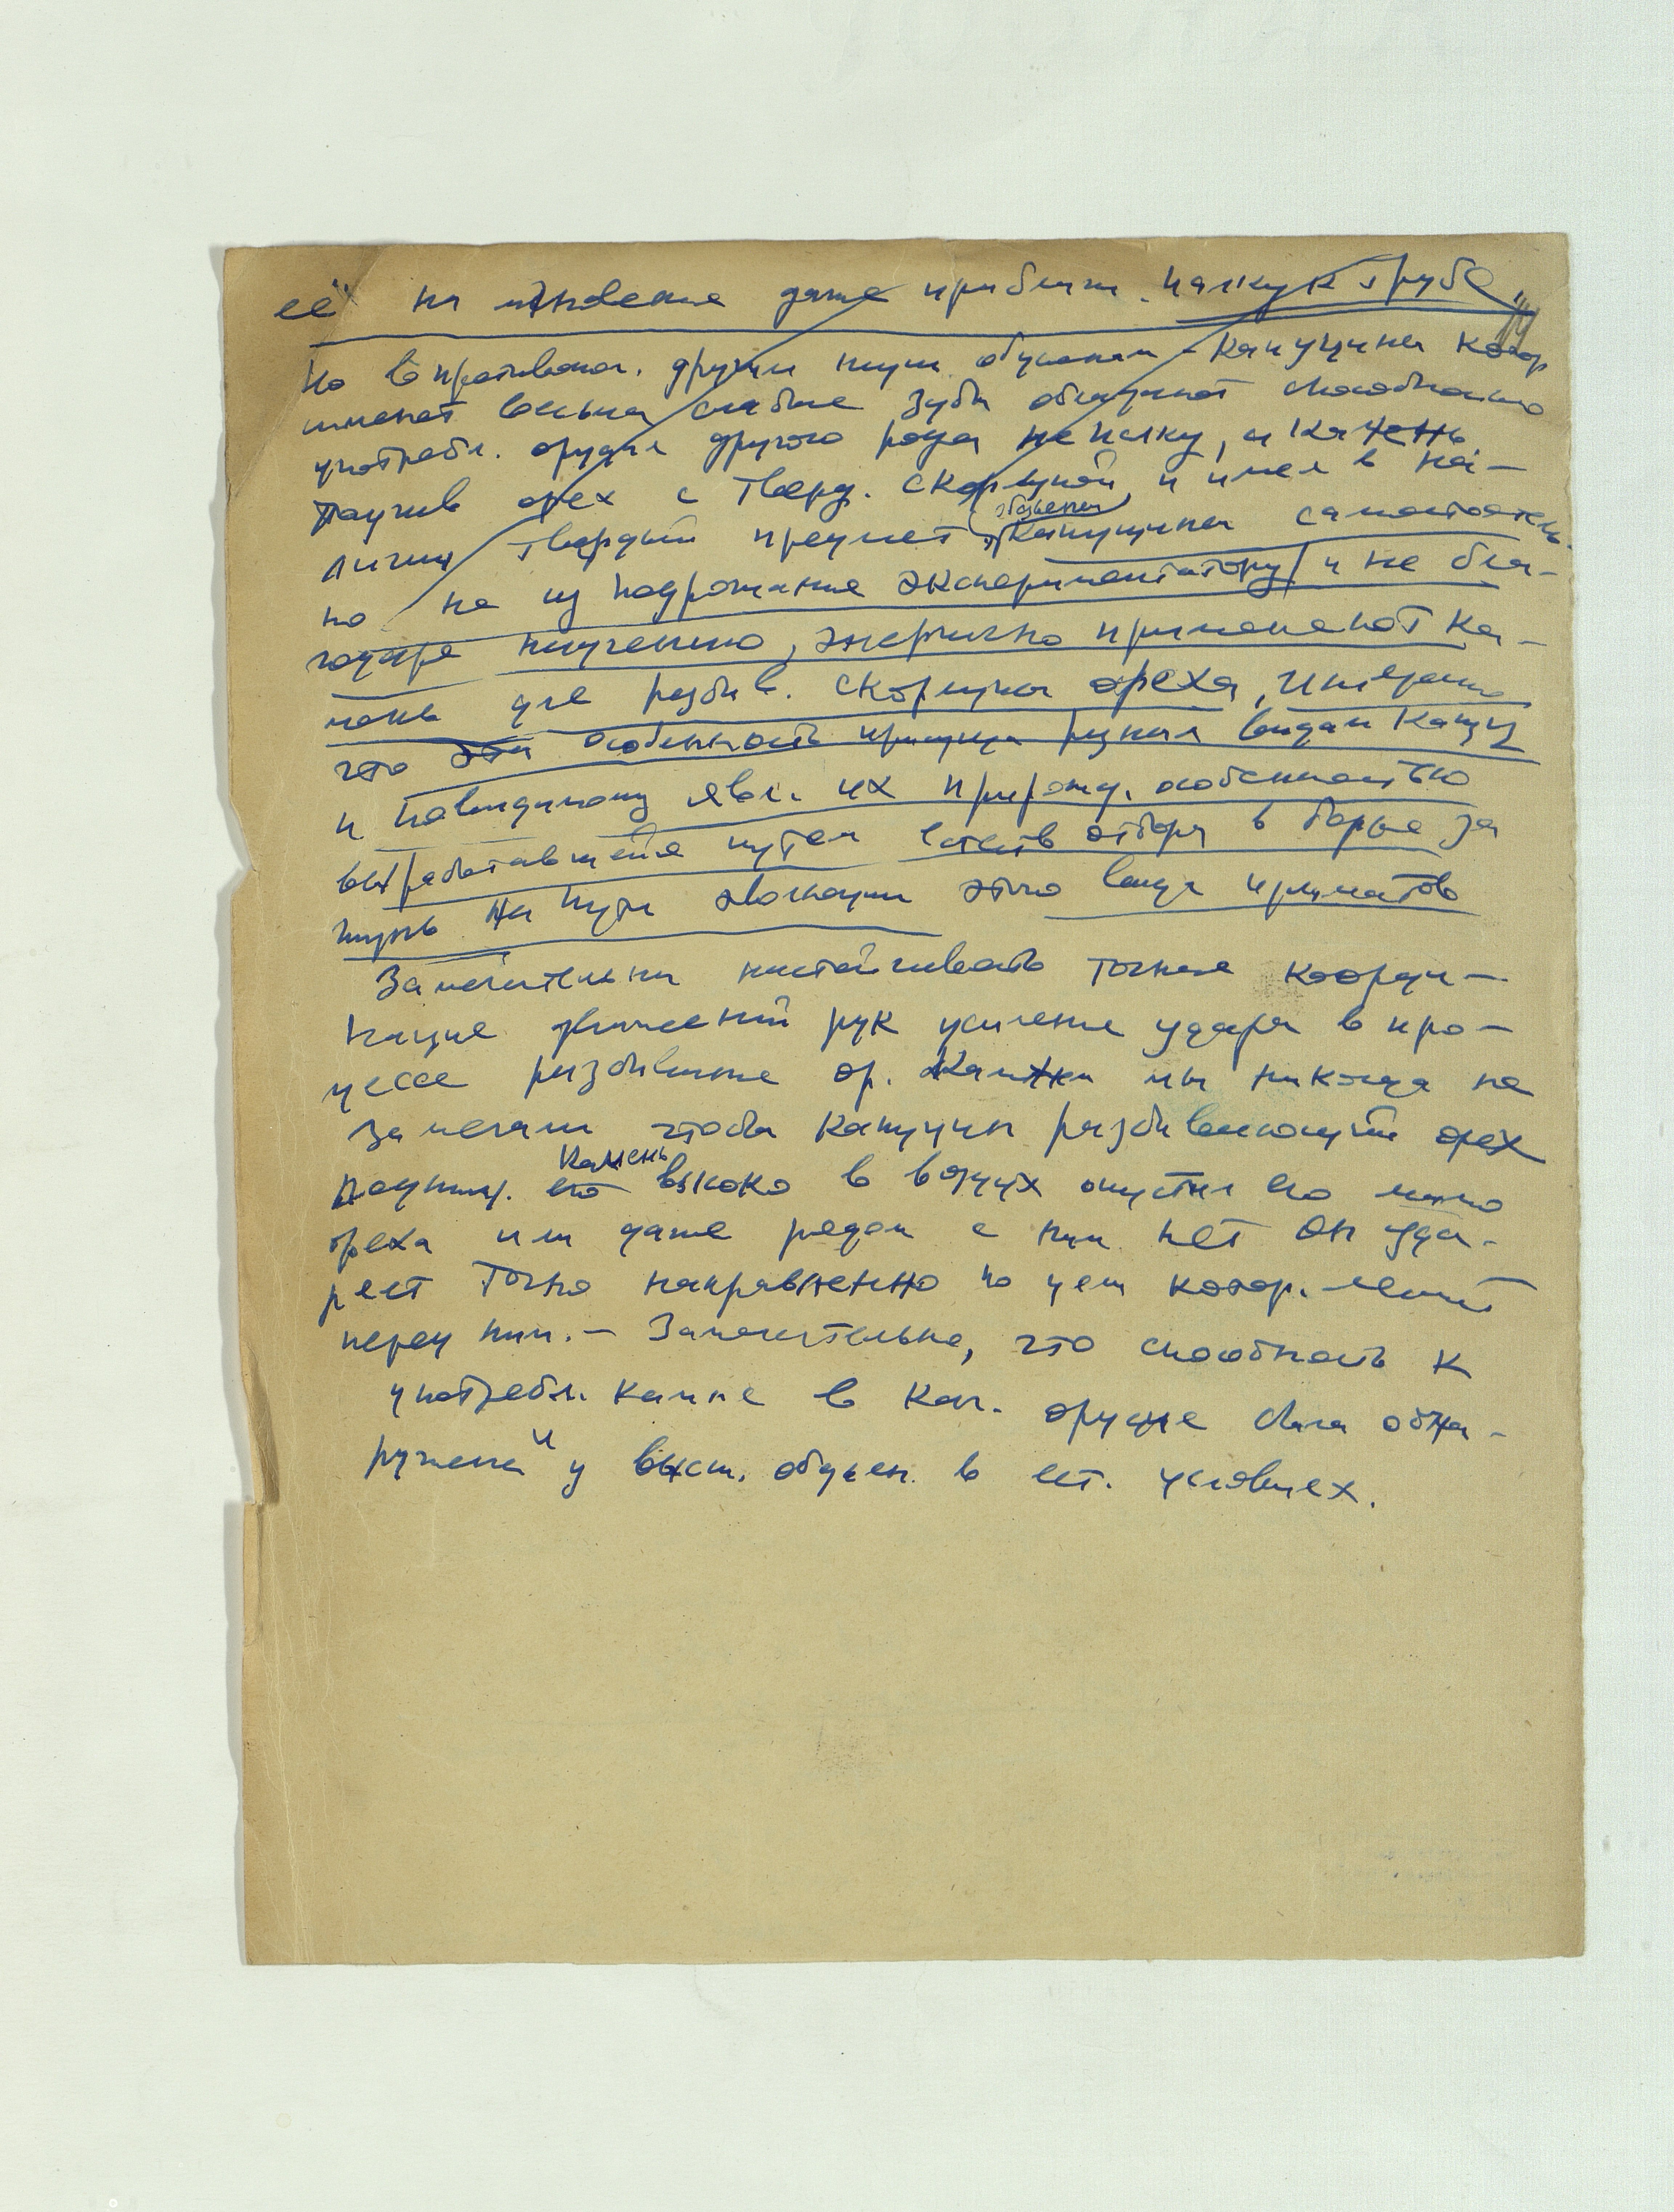 её на мгновение даже приблизи. палку к трубе"
Но в противопол. другим низш обезьянам – капуцины котор
имеют весьма слабые зубы обнаружат способность
употребл. орудия другого рода не палку, а камень
Получив орех с тверд. скорлупой и имея в на-
личии твердый предмет обезьяны капуцины самостоятель-
но не из подражания экспериментатору и не бла-
годаря научению, энергично применяют ка-
мень для разбив. скорлупы ореха,
что эта особенность присуща разным видам капуц
и повидимому явл. их прирожд. особенностью
выработавшейся путем естеств отбора в борьбе за
жизнь на пути эволюции этого вида приматов
Замечательны настойчивость точная коорди-
нация движений рук усиление удара в про-
цессе разбивание ор. Камнями мы никогда не
замечали чтобы капуцин разбивающий орех
подним. его камень высоко в воздух опустил его мимо
ореха или даже рядом с ним нет он уда-
ряет точно направленно по цели котор. лежит
перед ним. – Замечательно, что способность к
употребл. камня в кач. орудие была обна-
ружена и у высш. обезьян. в ест. условиях.